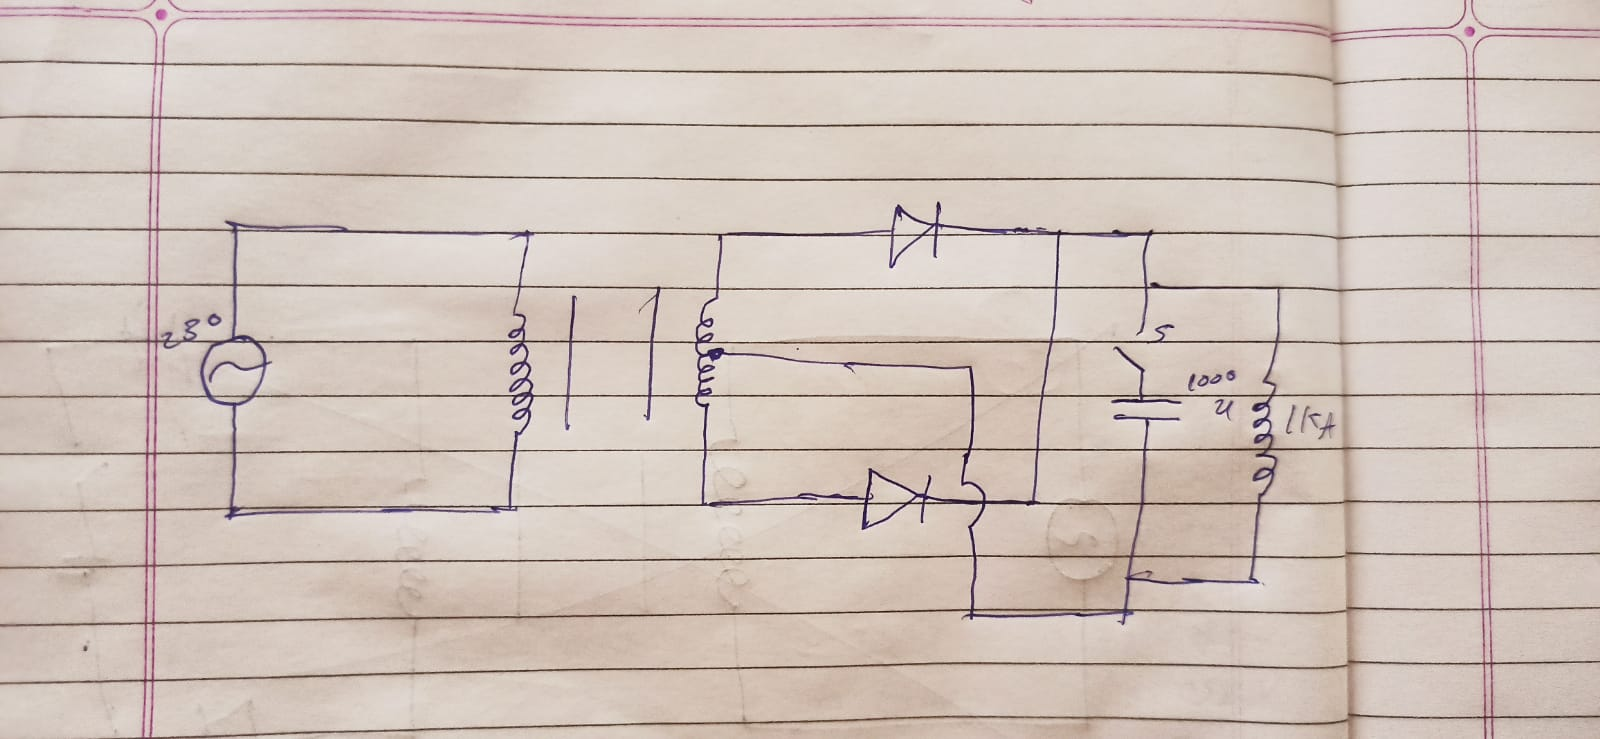 230
S
1000
u
1KΩ